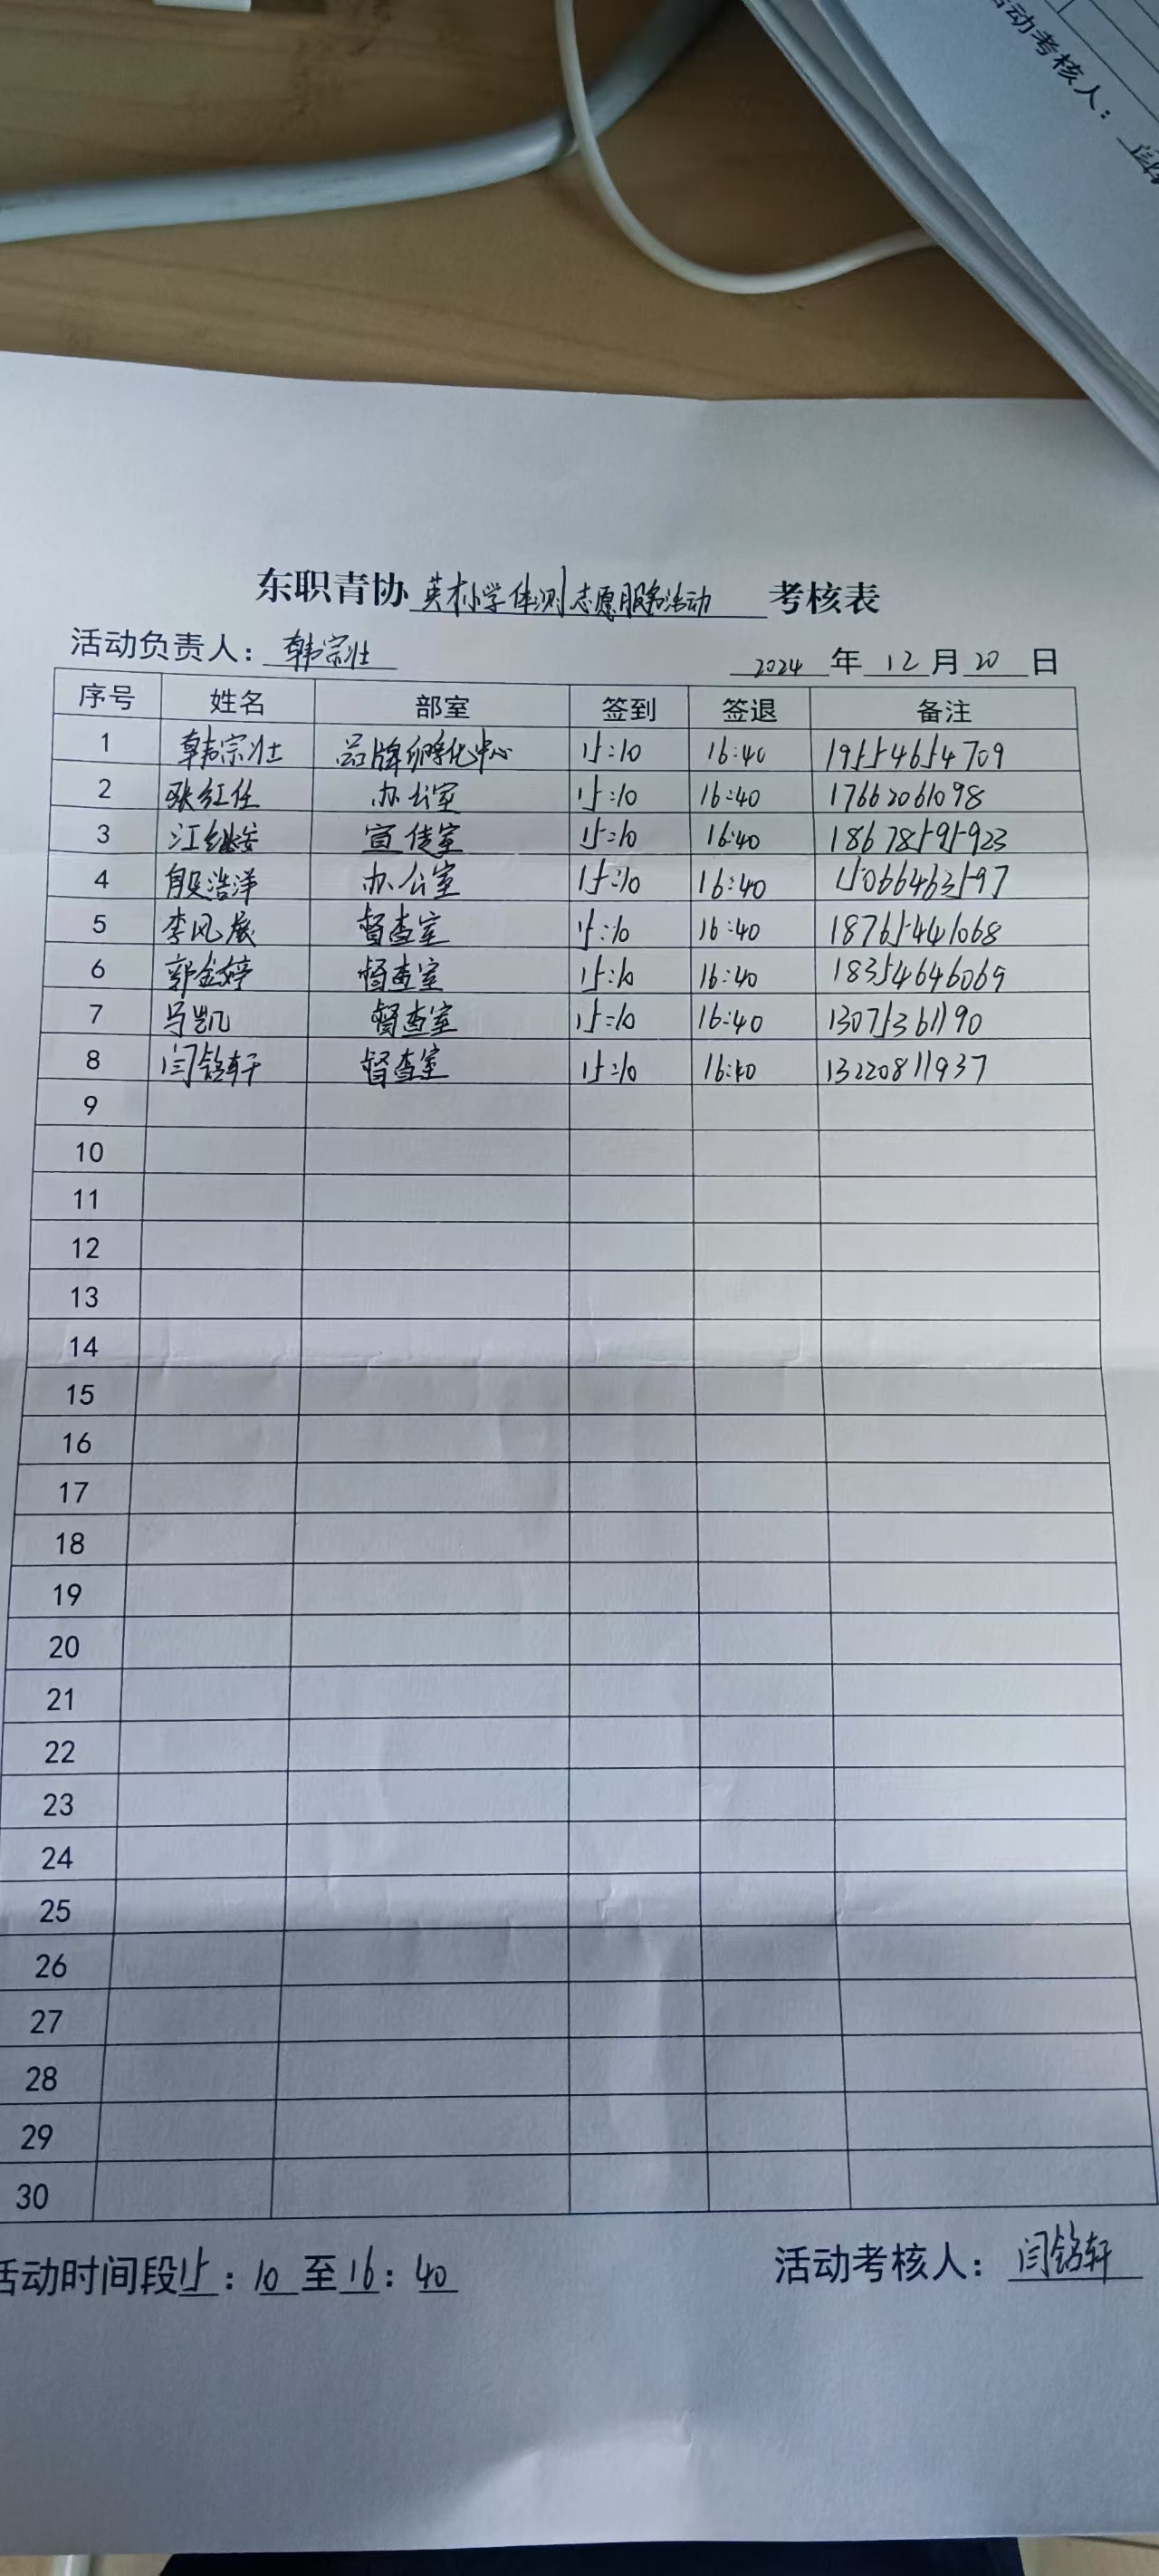 活动考核人：
东职青协 英才小学体测志愿服务活动 考核表
活动负责人：韩宗壮 2024 年 12 月 20 日
序号 姓名 部室 签到 签退 备注
1 韩宗壮 品牌孵化中心 15:10 16:40 19554654709
2 张红任 办公室 15:10 16:40 17662061098
3 江继安 宣传室 15:10 16:40 18678595923
4 殷浩洋 办公室 15:10 16:40 15066463597
5 李风展 督查室 15:10 16:40 18765441068
6 郭金婷 督查室 15:10 16:40 18354646069
7 马凯 督查室 15:10 16:40 13075361190
8 闫铭轩 督查室 15:10 16:40 13220811937
9
10
11
12
13
14
15
16
17
18
19
20
21
22
23
24
25
26
27
28
29
30
活动时间段 15：10 至 16：40 活动考核人：闫铭轩